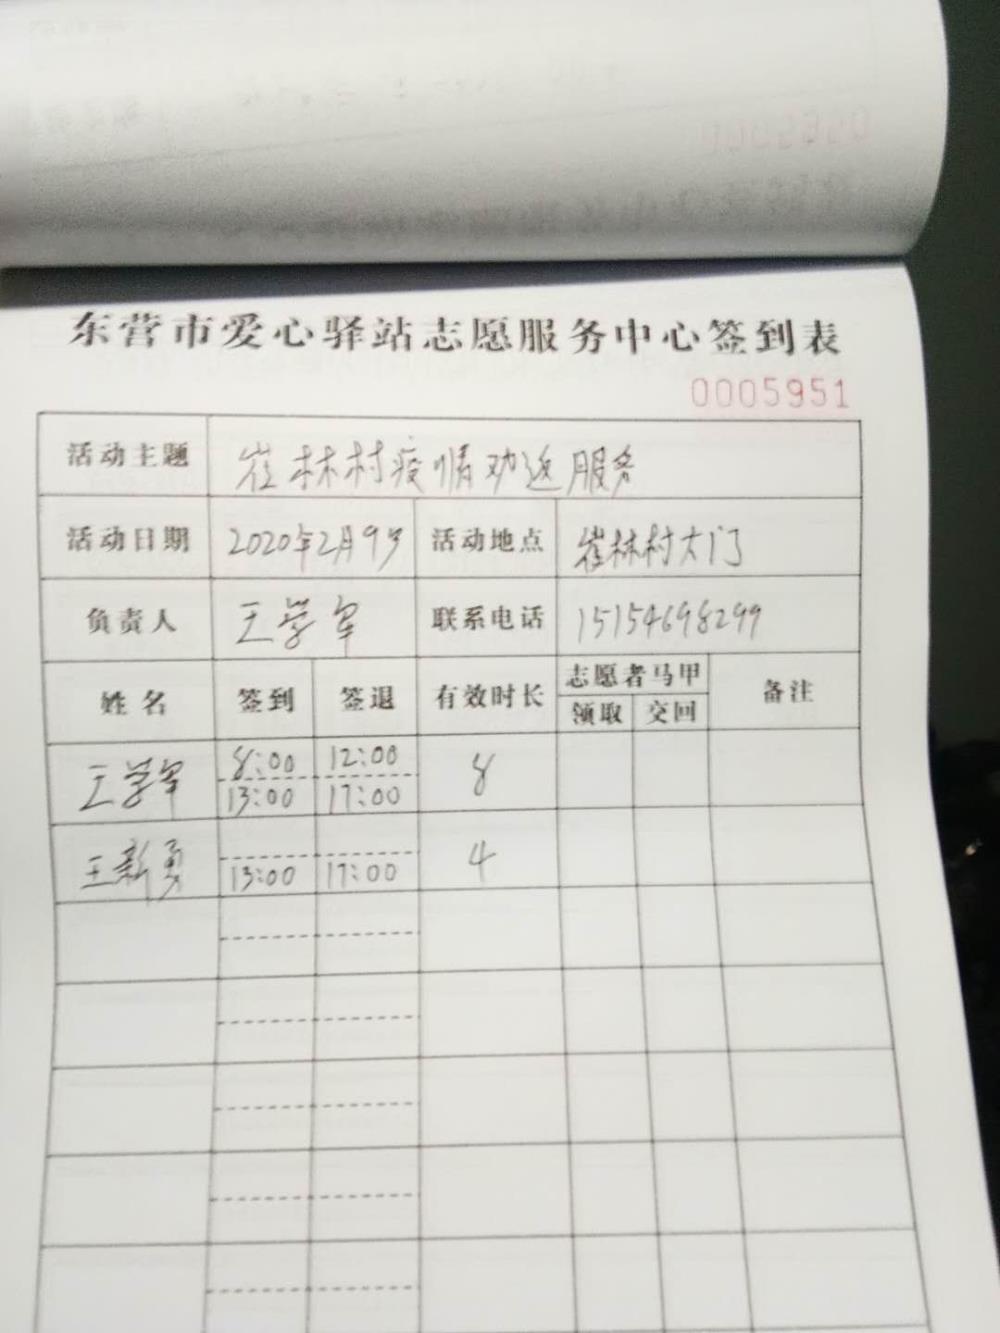 东营市爱心驿站志愿服务中心签到表
0005951
活动主题 崔林村疫情劝返服务
活动日期 2020年2月9号 活动地点 崔林村大门
负责人 王学军 联系电话 15154698299
姓名 签到 签退 有效时长 志愿者马甲 备注
领取 交回
王学军 8:00 12:00 8
13:00 17:00
王新勇 13:00 17:00 4